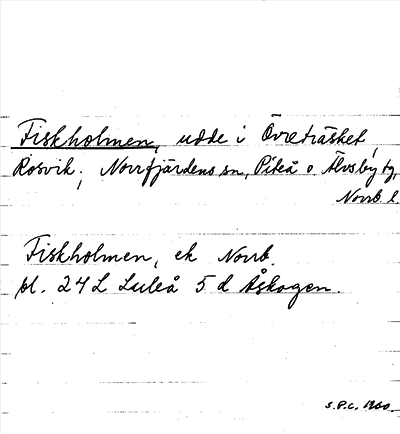 Fiskholmen, udde i Övreträsket,
Rosvik; Norrfjärdens sn, Piteå o Älvsby tg,
Norrb. l.
Fiskholmen, ek Norrb.
bl. 24 L Luleå 5 d Åskogen.
S.P.C. 1960